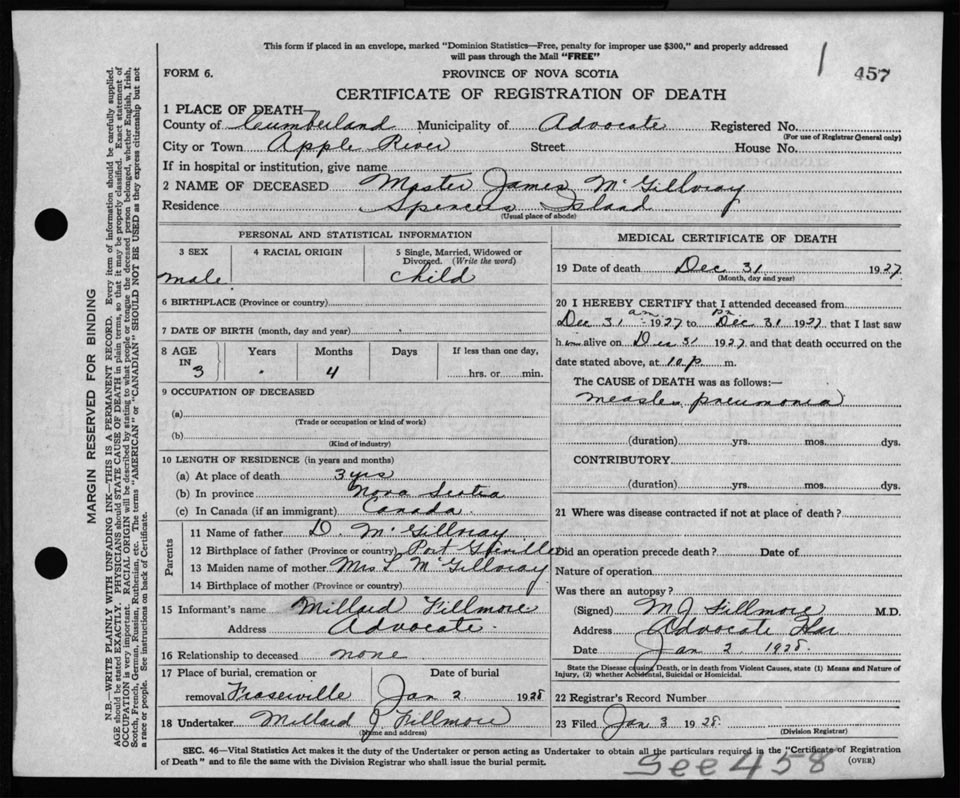 This form if placed in an envelope, marked "Dominion Statistics—Free, penalty for improper use $300," and properly addressed
will pass through the Mail "FREE"
1 457
FORM 6.
PROVINCE OF NOVA SCOTIA
CERTIFICATE OF REGISTRATION OF DEATH
1 PLACE OF DEATH—
County of Cumberland Municipality of Advocate Registered No.
(For use of Registrar General only)
City or Town Apple River Street House No.
If in hospital or institution, give name
2 NAME OF DECEASED Master James McGillvray
Residence Spencers Island
(Usual place of abode)
PERSONAL AND STATISTICAL INFORMATION
3 SEX 4 RACIAL ORIGIN 5 Single, Married, Widowed or
Divorced. (Write the word)
male child
6 BIRTHPLACE (Province or country)
7 DATE OF BIRTH (month, day and year)
8 AGE Years Months Days If less than one day,
IN
3 4 hrs. or min.
9 OCCUPATION OF DECEASED
(a)
(Trade or occupation or kind of work)
(b)
(Kind of industry)
10 LENGTH OF RESIDENCE (in years and months)
(a) At place of death 3 yrs
(b) In province Nova Scotia
(c) In Canada (if an immigrant) Canada
Parents
11 Name of father D. McGillvray
12 Birthplace of father (Province or country) Port Greville
13 Maiden name of mother Mrs L McGillvray
14 Birthplace of mother (Province or country)
15 Informant's name Millard Fillmore
Address Advocate
16 Relationship to deceased none
17 Place of burial, cremation or Date of burial
removal Fraserville Jan 2 1928
18 Undertaker Millard J Fillmore
(Name and address)
MEDICAL CERTIFICATE OF DEATH
19 Date of death Dec 31 1927
(Month, day and year)
20 I HEREBY CERTIFY that I attended deceased from
am
Dec 31 1927 to Dec 31 1927 that I last saw
h im alive on Dec 31 1927 and that death occurred on the
date stated above, at 10 p m.
The CAUSE of DEATH was as follows:—
measles pneumonia
(duration) yrs. mos. dys.
CONTRIBUTORY
(duration) yrs. mos. dys.
21 Where was disease contracted if not at place of death?
Did an operation precede death? Date of
Nature of operation
Was there an autopsy?
(Signed) M J Fillmore M.D.
Address Advocate Har
Date Jan 2 1928
State the Disease causing Death, or in death from Violent Causes, state (1) Means and Nature of
Injury, (2) whether Accidental, Suicidal or Homicidal.
22 Registrar's Record Number
23 Filed Jan 3 1928
(Division Registrar)
SEC. 46—Vital Statistics Act makes it the duty of the Undertaker or person acting as Undertaker to obtain all the particulars required in the "Certificate of Registration
of Death" and to file the same with the Division Registrar who shall issue the burial permit.
(OVER)
See 458
MARGIN RESERVED FOR BINDING
N.B.—WRITE PLAINLY WITH UNFADING INK—THIS IS A PERMANENT RECORD. Every item of information should be carefully supplied.
AGE should be stated EXACTLY. PHYSICIANS should STATE CAUSE OF DEATH in plain terms, so that it may be properly classified. Exact statement of
OCCUPATION is very important. RACIAL ORIGIN will be described by stating to what people or tongue the deceased person belonged, whether English, Irish,
Scotch, French, German, Russian, Ruthenian, etc. The terms "AMERICAN" or "CANADIAN" SHOULD NOT BE USED as they express citizenship but not
a race or people. See instructions on back of Certificate.